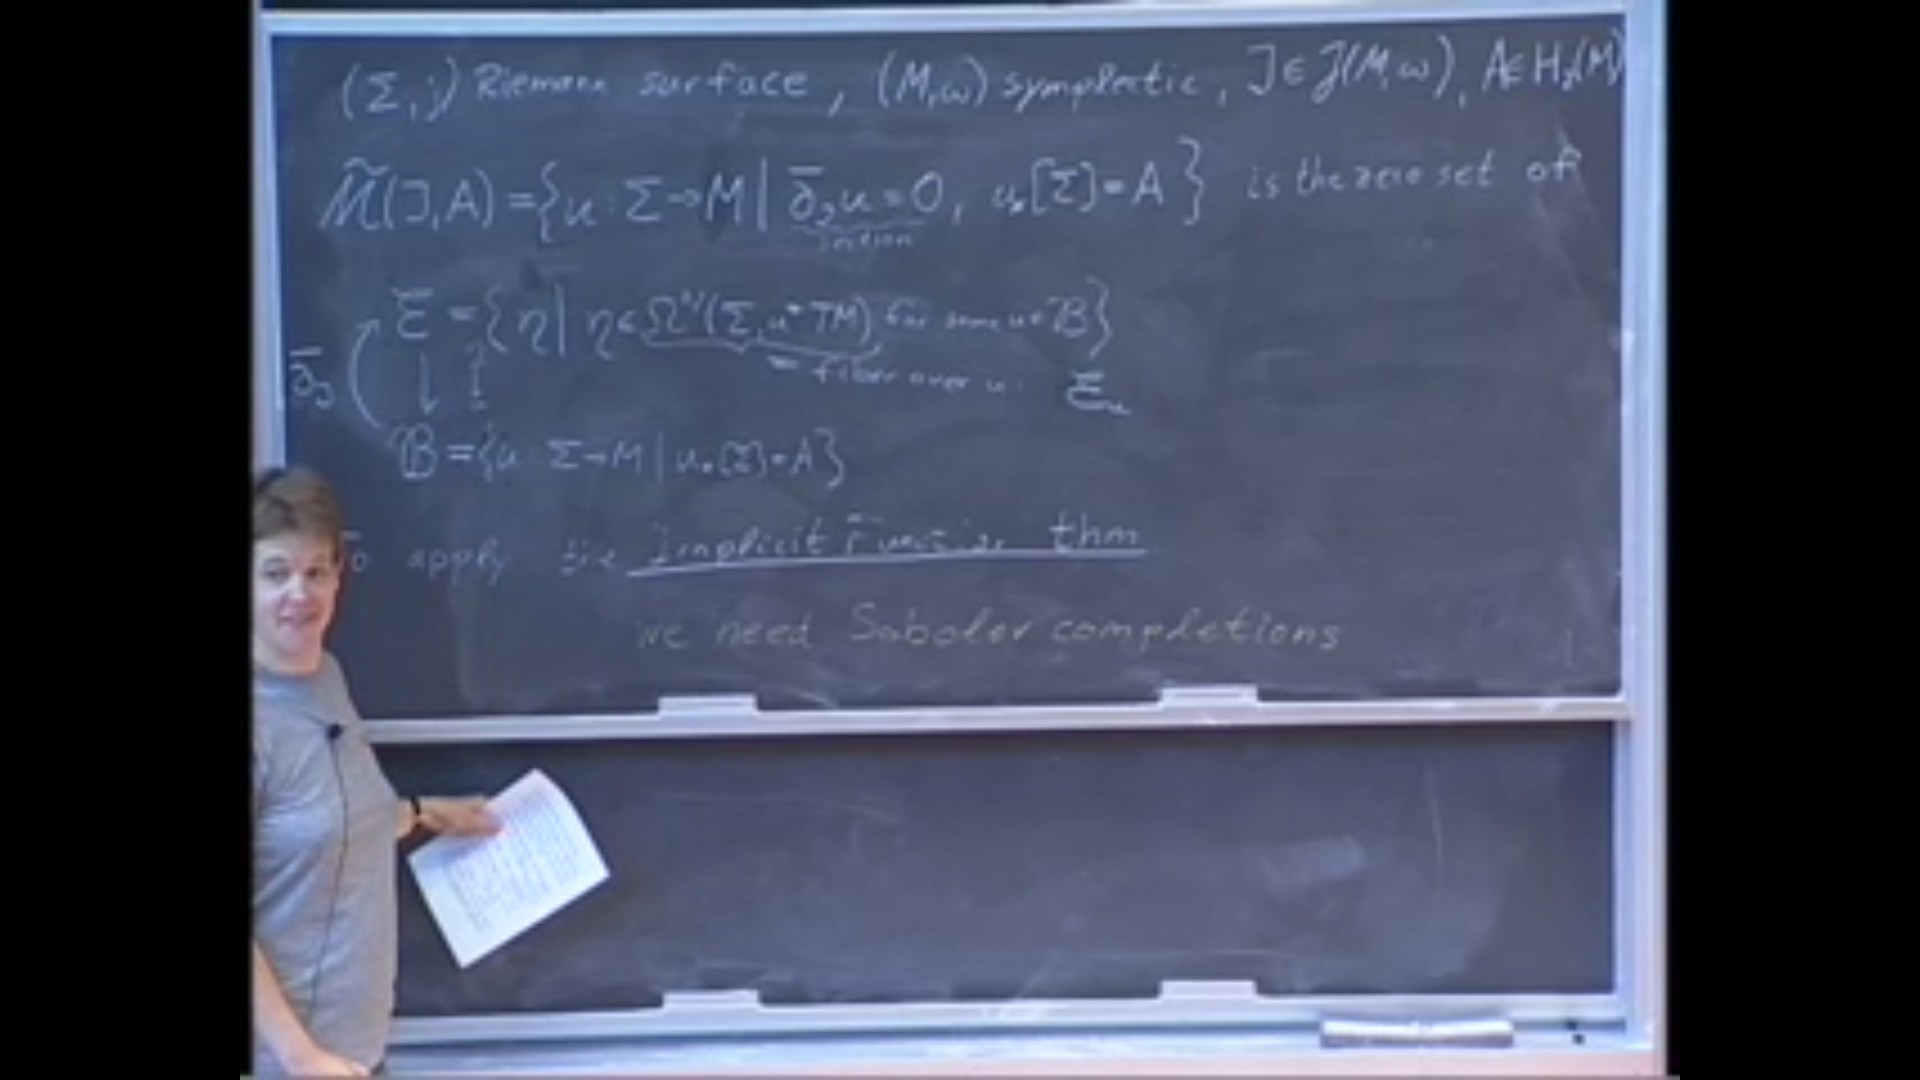 (Σ, j) Riemann surface, (M,ω) symplectic, J ∈ 𝒥(M,ω), A ∈ H₂(M)
ℳ̃(J,A) = {u : Σ → M | ∂̄_J u = 0, u_*[Σ] = A} is the zero set of
section
ℰ = {η | η ∈ Ω^{0,1}(Σ, u*TM) for some u ∈ ℬ}
∂̄_J ↓ = fiber over u: ℰ_u
ℬ = {u : Σ → M | u_*[Σ] = A}
To apply the Implicit Function thm
we need Sobolev completions